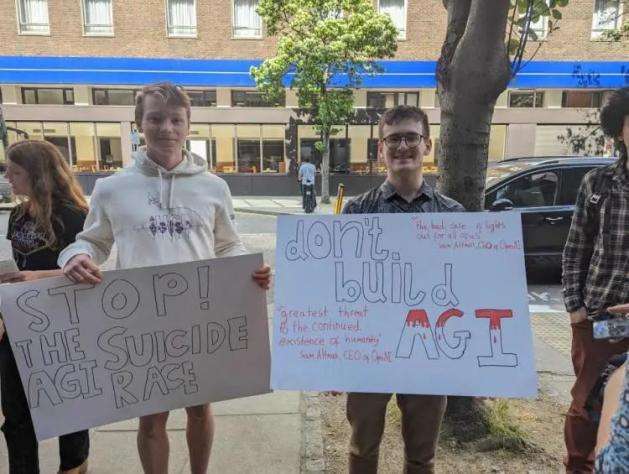 STOP!
THE SUICIDE
AGI RACE
don't
build
AGI
"The bad case is lights
out for all of us"
Sam Altman, CEO of OpenAI
"greatest threat
to the continued
existence of humanity"
Sam Altman, CEO of OpenAI